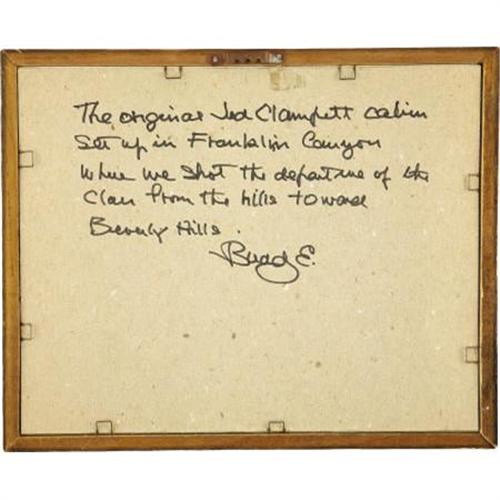 The original Jed Clampett cabin
Set up in Franklin Canyon
where we shot the departure of the
Clan from the hills toward
Beverly Hills.
Buddy E.